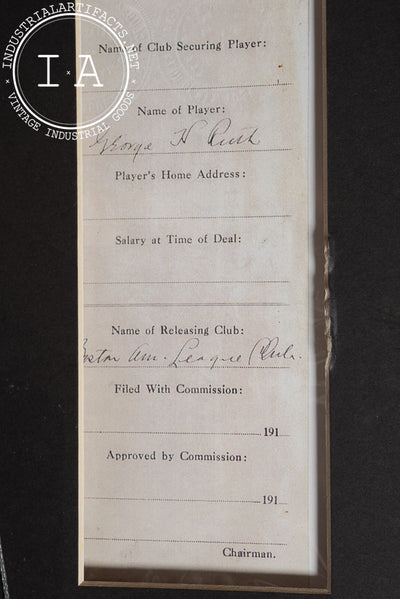 INDUSTRIALARTIFACTS.NET
I A
VINTAGE INDUSTRIAL GOODS
Name of Club Securing Player:
Name of Player:
George H Ruth
Player's Home Address:
Salary at Time of Deal:
Name of Releasing Club:
oston Am. League Club.
Filed With Commission:
191
Approved by Commission:
191
Chairman.